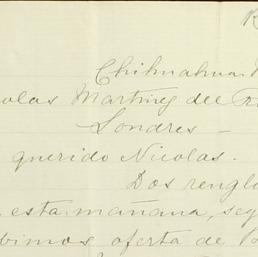 Chihuahua
olas Martinez del
Londres -
querido Nicolas.
Dos renglo
esta mañana, seg
bimos oferta de